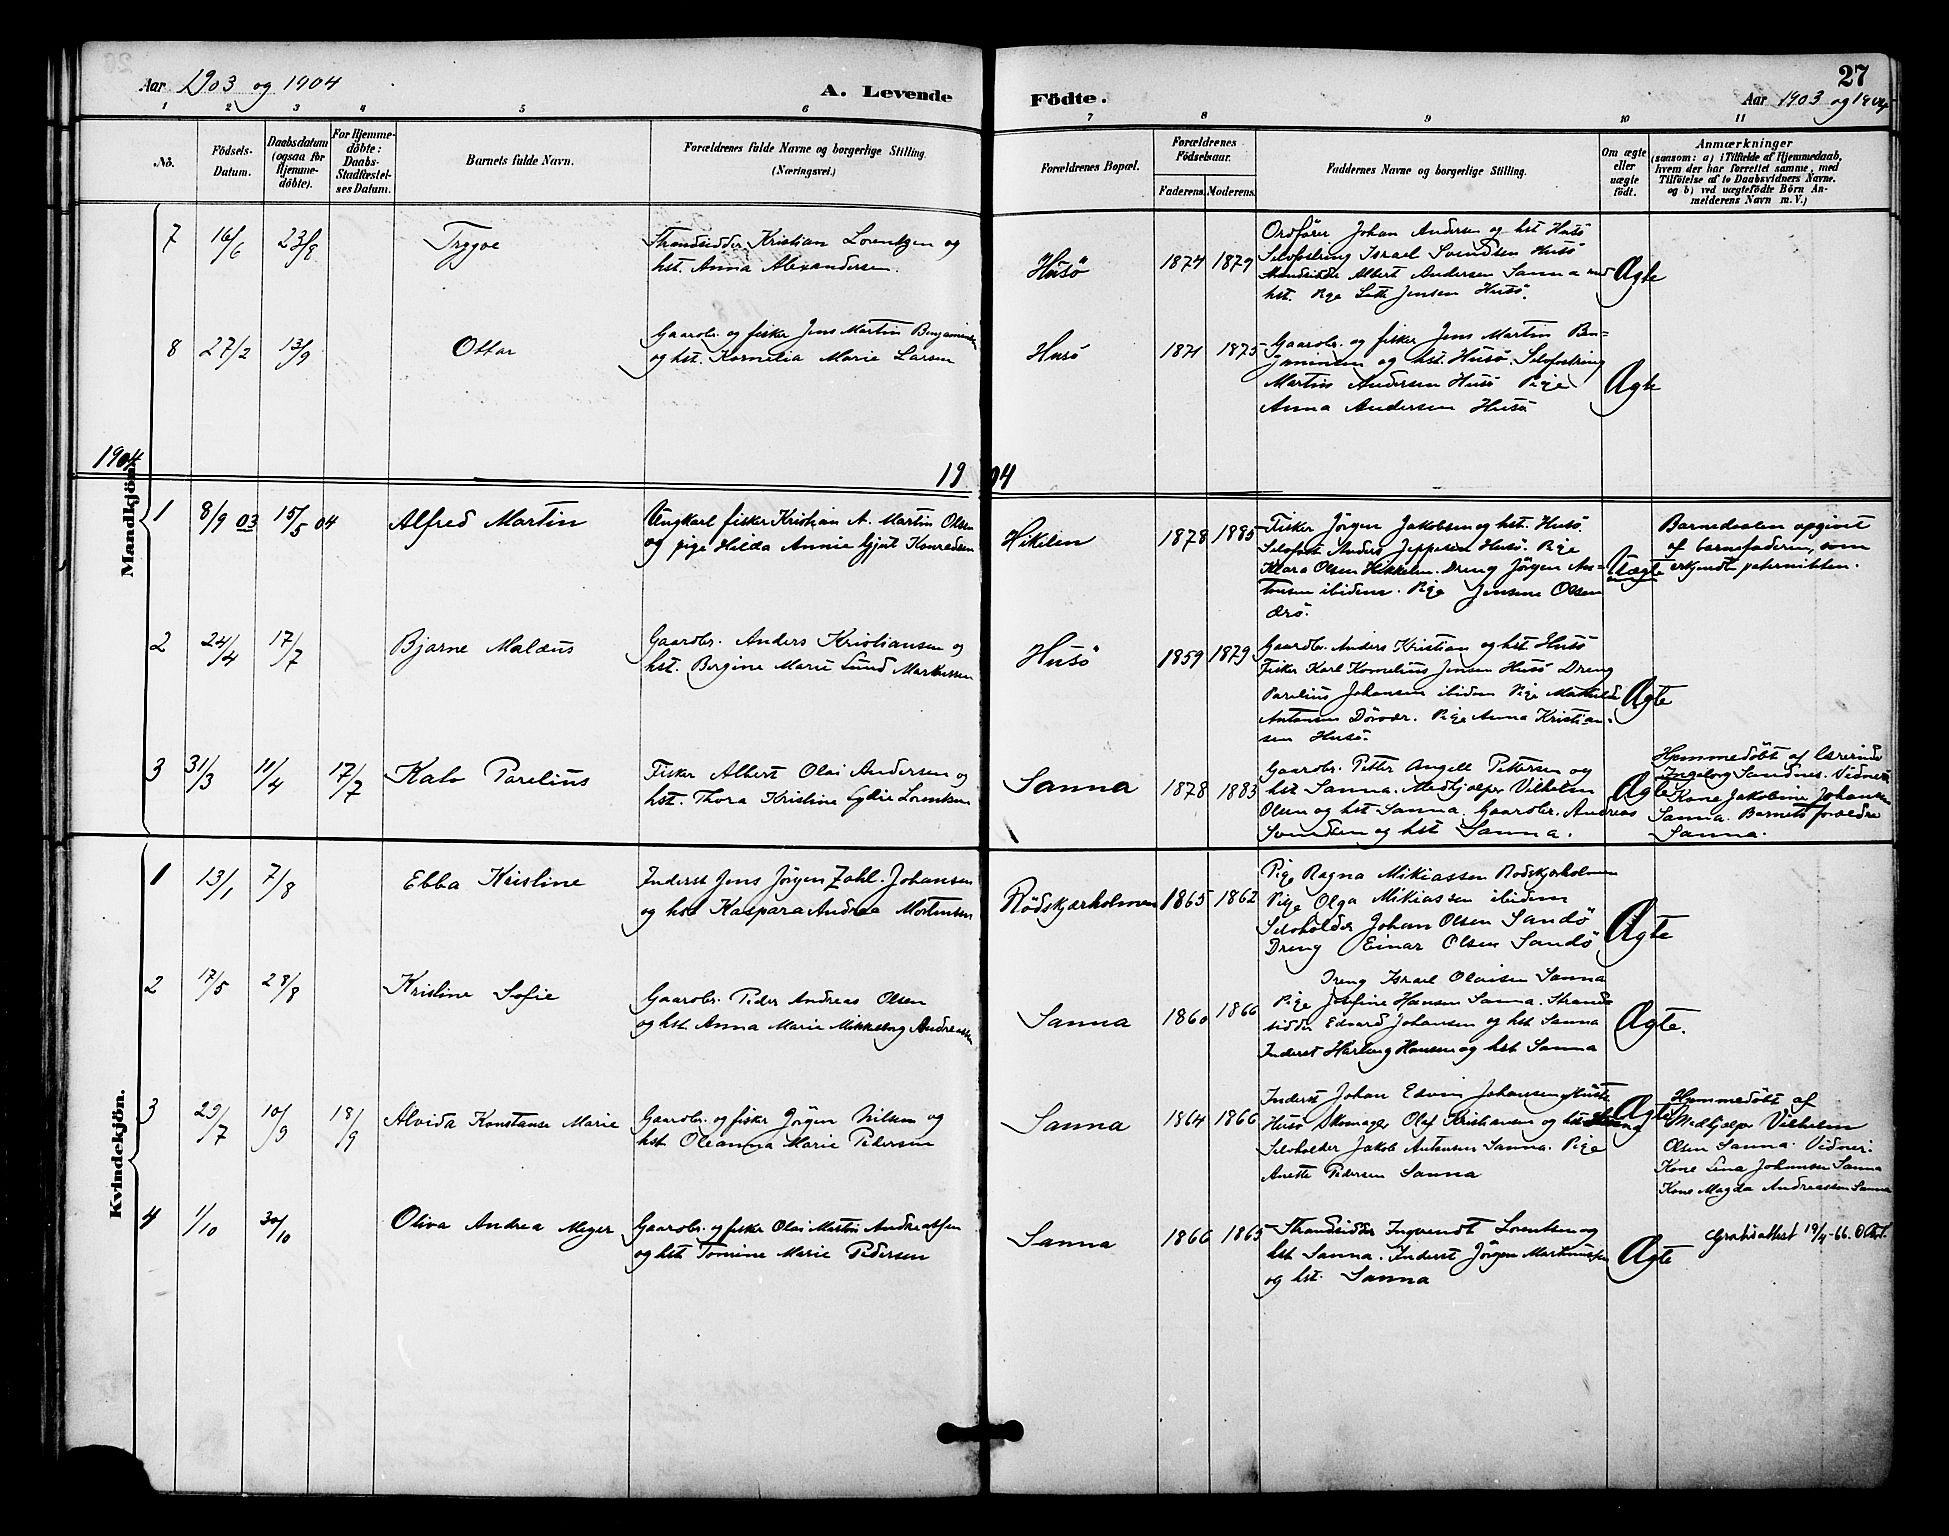 Aar 1903 og 1904
A. Levende
Födte.
27
Aar 1903 og 1904
1 2 3 4 5 6 7 8 9 10 11
No.
Födsels-Datum.
Daabsdatum (ogsaa for Hjemmedöbte).
For Hjemmedöbte: Daabs-Stadfæstelses Datum.
Barnets fulde Navn.
Forældrenes fulde Navne og borgerlige Stilling.
(Næringsvei.)
Forældrenes Bopæl.
Forældrenes Födselsaar.
Faderens. Moderens.
Faddernes Navne og borgerlige Stilling.
Om ægte eller uægte födt.
Anmærkninger
(saasom: a) i Tilfælde af Hjemmedaab, hvem der har forrettet samme, med Tilföielse af to Daabsvidners Navne. og b) ved uægtefödte Börn Anmelderens Navn m. V.)
7 16/6 23/8 Trygve
Strandsidder Kristian Lorentzen og
hst. Anna Alexandersen.
Husö 1874 1879
Ordfører Johan Andersen og hst Husö
Selvfostring Israel Svendsen Husö
Strandsidder Albert Andersen Sanna med
hst. Pige Jensen Husö.
Ægte
8 27/2 13/9 Ottar
Gaardbr. og fisker Jens Martin Benjaminsen
og hst. Kornelia Marie Larsen
Husö 1871 1875
Gaardbr. og fisker Jens Martin Ben=
jaminsen og hst. Husö. Selvfostring
Martin Andersen Husö Pige
Anna Andersen Husö
Ægte
1904
1904
Mandkjön.
1 8/9 03 15/5 04 Alfred Martin
Ungkarl fisker Kristian A. Martin Olsen
og pige Hilda Annie Gjert Konradsen
Hikelen 1878 1885
Fisker Jörgen Jakobsen og hst. Husö
Selvfost Anders Jeppesen Husö. Pige
Klara Olsen Hikkelen. Dreng Jörgen An=
tonsen ibidem. Pige Jensine Olsen
Uægte
Barnedaaben opgivet
af barnefaderen, som
erkjendte paterniteten.
2 24/4 17/7 Bjarne Malæus
Gaardbr. Anders Kristiansen og
hst. Bergine Marie Lund Markussen
Husö 1859 1879
Gaardbr. Anders Kristian og hst Husö
Fisker Karl Kornelius Jensen Husö Dreng
Parelius Johansen ibidem Pige Mathilde
Antonsen Dörvær. Pige Anna Kristian-
sen Husö.
Ægte
3 31/3 11/4 17/7 Kalv Parelius
Fisker Albert Olai Andersen og
hst. Thora Kristine Lorentsen
Sanna 1878 1883
Gaardbr. Petter Angell Pettersen og
hst Sanna. Medhjælper Vilhelm
Olsen og hst Sanna. Gaardbr. Andreas
Svendsen og hst Sanna.
Ægte
Hjemmedöbt af lærerinde
Ingeborg Sandnes. Vidner
Kone Jakobine Johansen
Sanna. Barnets forældre
Sanna.
Kvindekjön.
1 13/1 7/8 Ebba Kristine
Inderst Jens Jörgen Zahl Johansen
og hst Kaspara Andrea Mortensen
Rödskjærholmen 1865 1862
Pige Ragna Mikiassen Rödskjærholmen
Pige Olga Mikiassen ibidem
Selvholder Johan Olsen Sandö
Dreng Einar Olsen Sandö
Ægte
2 17/5 28/8 Kristine Sofie
Gaardbr. Peder Andreas Olsen
og hst. Anna Marie Mikkelborg Andreassen
Sanna 1860 1866
Dreng Israel Olaisen Sanna
Pige Josefine Hansen Sanna. Strand
sidder Edvard Johansen og hst Sanna
Inderst Hartvig Hansen og hst Sanna
Ægte.
3 29/7 10/9 18/9 Alvida Konstanse Marie
Gaardbr. og fisker Jörgen Nilsen og
hst Oleanna Marie Pedersen
Sanna 1864 1866
Inderst Johan Edvin Johansen og hustr
Husö Skomager Olaf Kristiansen og hst
Selvholder Jakob Antonsen Sanna. Pige
Anette Pedersen Sanna
Ægte
Hjemmedöbt af
Medhjælper Vilhelm
Olsen Sanna. Vidner:
Kone Lina Johansen Sanna
Kone Magda Andreassen Sanna
4 1/10 30/10 Oliva Andrea Meyer
Gaardbr. og fisker Olai Martin Andreassen
og hst Tomine Marie Pedersen
Sanna 1866 1865
Strandsidder Ingvardt Lorentsen og
hst Sanna. Inderst Jörgen Martinussen
og hst. Sanna
Ægte
Gratisattest 19/4-66.